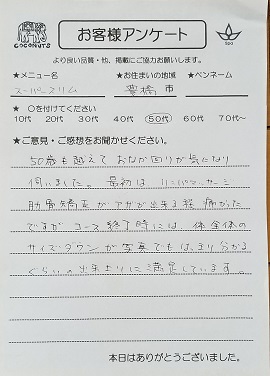 COCONUTS
お客様アンケート
spa
より良い品質・他、掲載にご協力お願いします。
★メニュー名 ★お住まいの地域 ★ペンネーム
スーパースリム 豊橋 市
★ ○を付けてください
10代 20代 30代 40代 50代 60代 70代～
★ご意見・ご感想をお聞かせください。
50歳も越えて おなか回りが気になり
伺いました。 最初は リンパマッサージ
肋骨矯正が アザが出来る程 痛かった
ですが コース終了時には 体全体の
サイズダウンが写真でもはっきり分かる
くらいの出来上りに満足しています。
本日はありがとうございました。